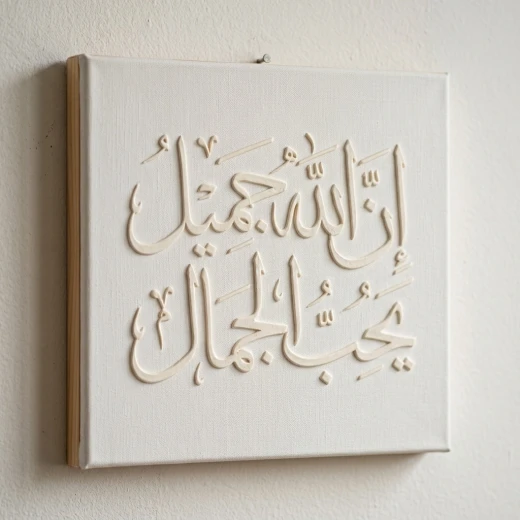 إِنَّ اللّٰهَ جَمِيْلٌ
يُحِبُّ الْجَمَالَ